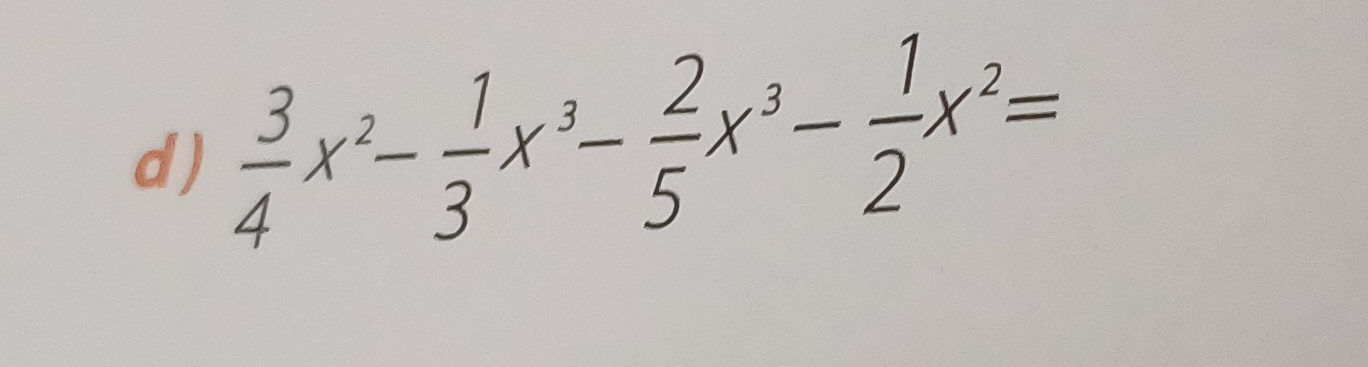 d) \frac{3}{4}x^2 - \frac{1}{3}x^3 - \frac{2}{5}x^3 - \frac{1}{2}x^2 =